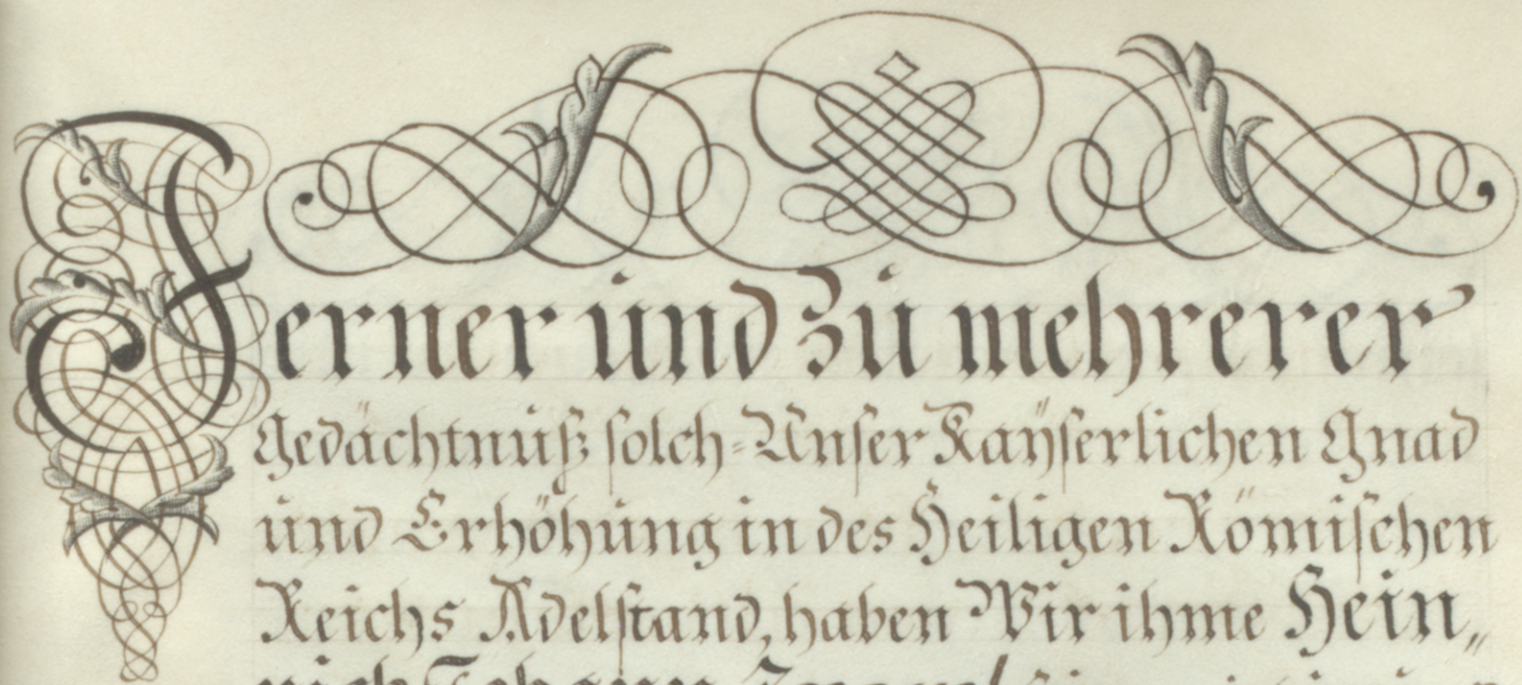 Ferner und Zu mehrerer
Gedächtnuß solch-Unser Kaÿserlichen Gnad
und Erhöhung in des Heiligen Römischen
Reichs Adelstand, haben Wir ihme Hein„